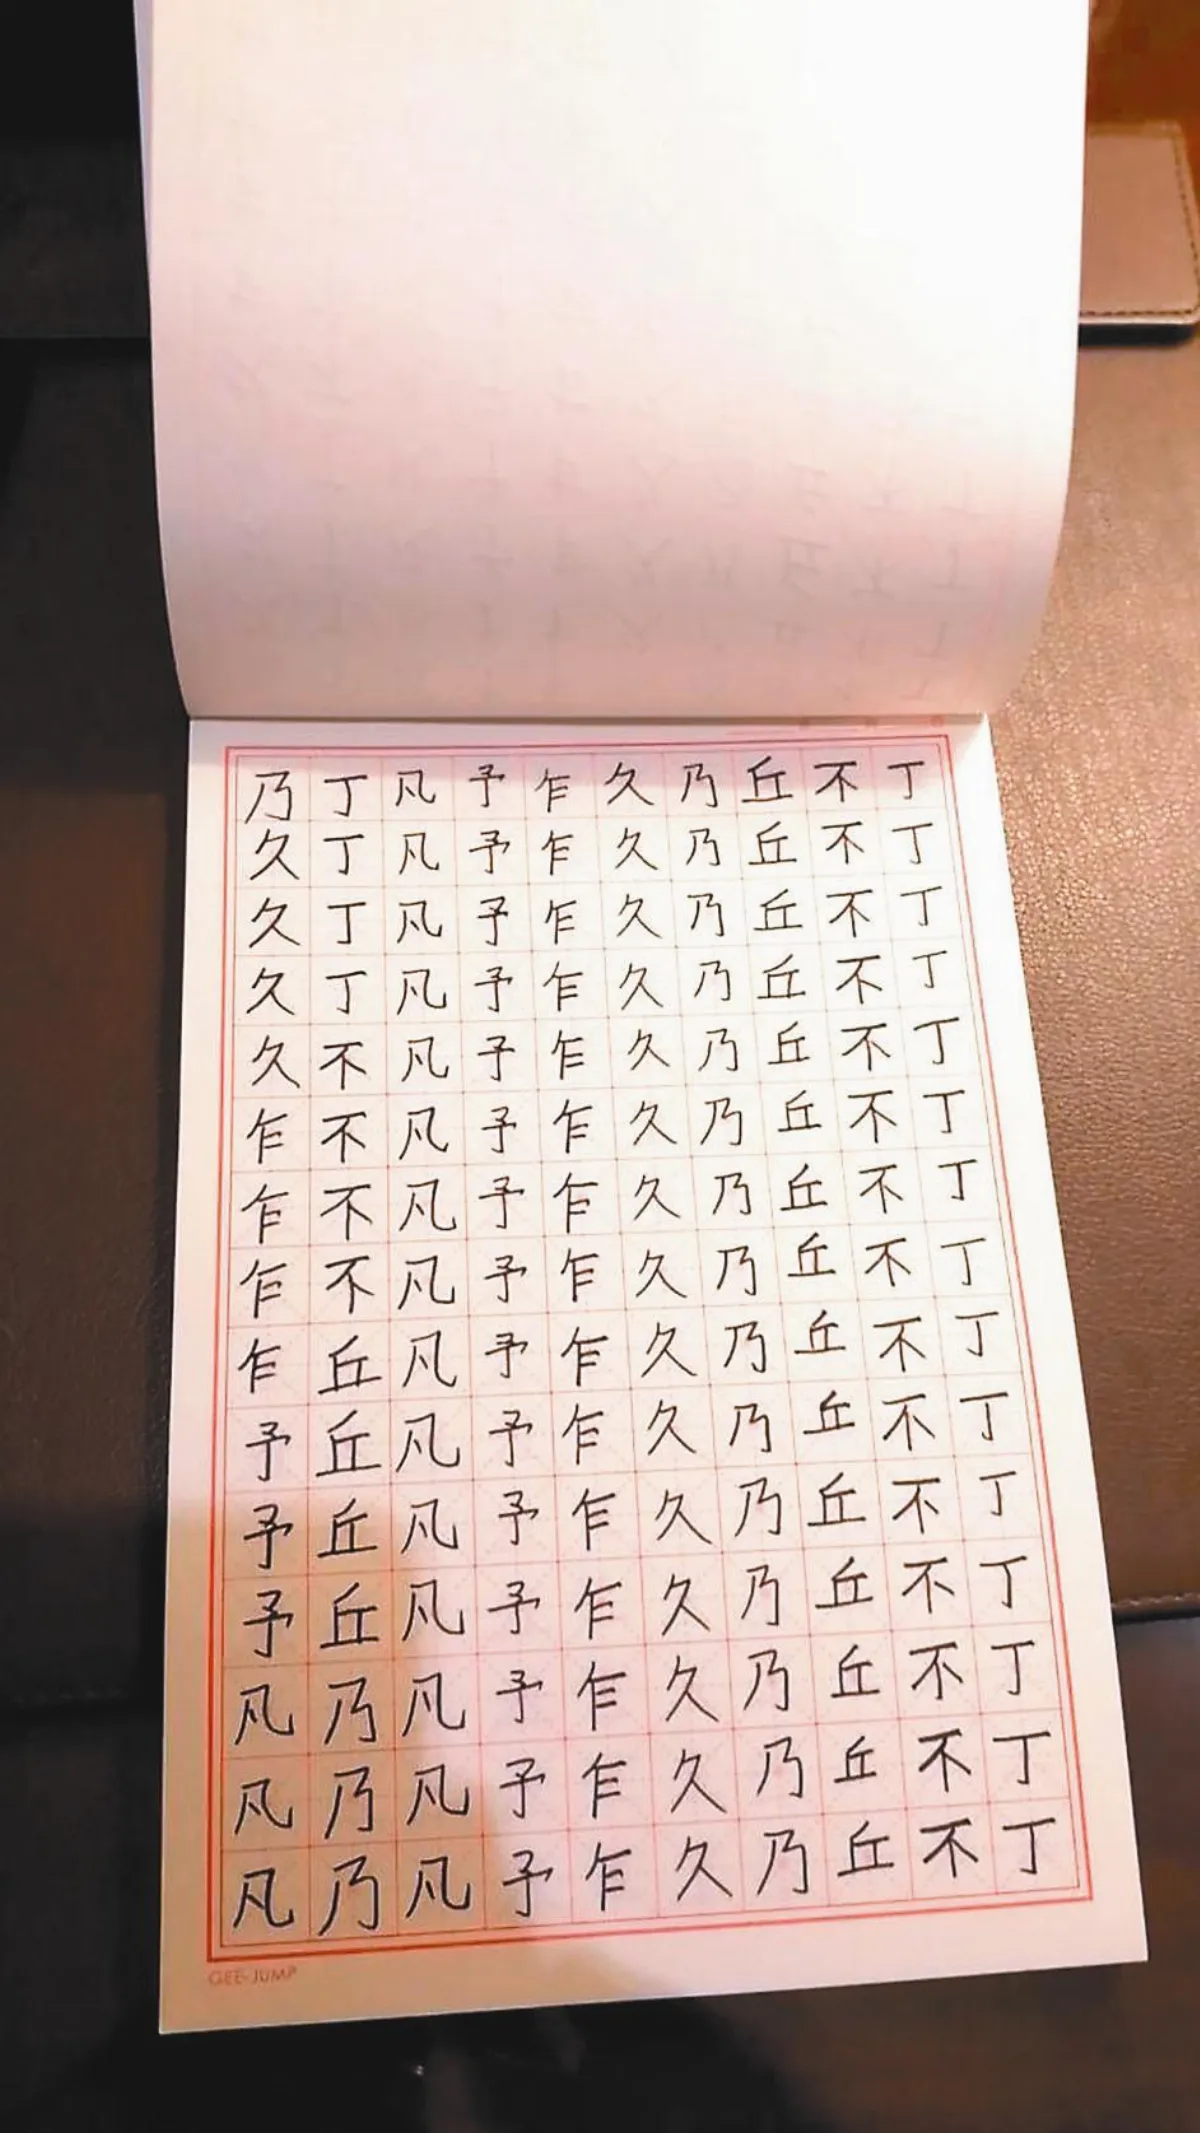 丁丁丁丁丁丁丁丁丁丁丁丁丁丁丁
不不不不不不不不不不不不不不不
丘丘丘丘丘丘丘丘丘丘丘丘丘丘丘
乃乃乃乃乃乃乃乃乃乃乃乃乃乃乃
久久久久久久久久久久久久久久久
乍乍乍乍乍乍乍乍乍乍乍乍乍乍乍
予予予予予予予予予予予予予予予
凡凡凡凡凡凡凡凡凡凡凡凡凡凡凡
丁丁丁丁不不不不丘丘丘丘乃乃乃
乃久久久久乍乍乍乍予予予凡凡凡
GEE-JUMP